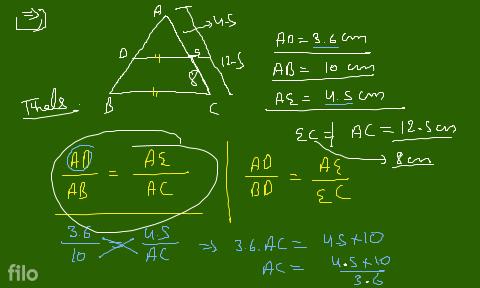 A
4.5
AD = 3.6 cm
D
12.5
8
AB = 10 cm
B
C
AE = 4.5 cm
Thals.
EC = AC = 12.5 cm
8 cm
AD/AB = AE/AC
AD/BD = AE/EC
3.6/10 4.5/AC ⇒ 3.6.AC = 4.5×10
AC = 4.5×10/3.6
filo